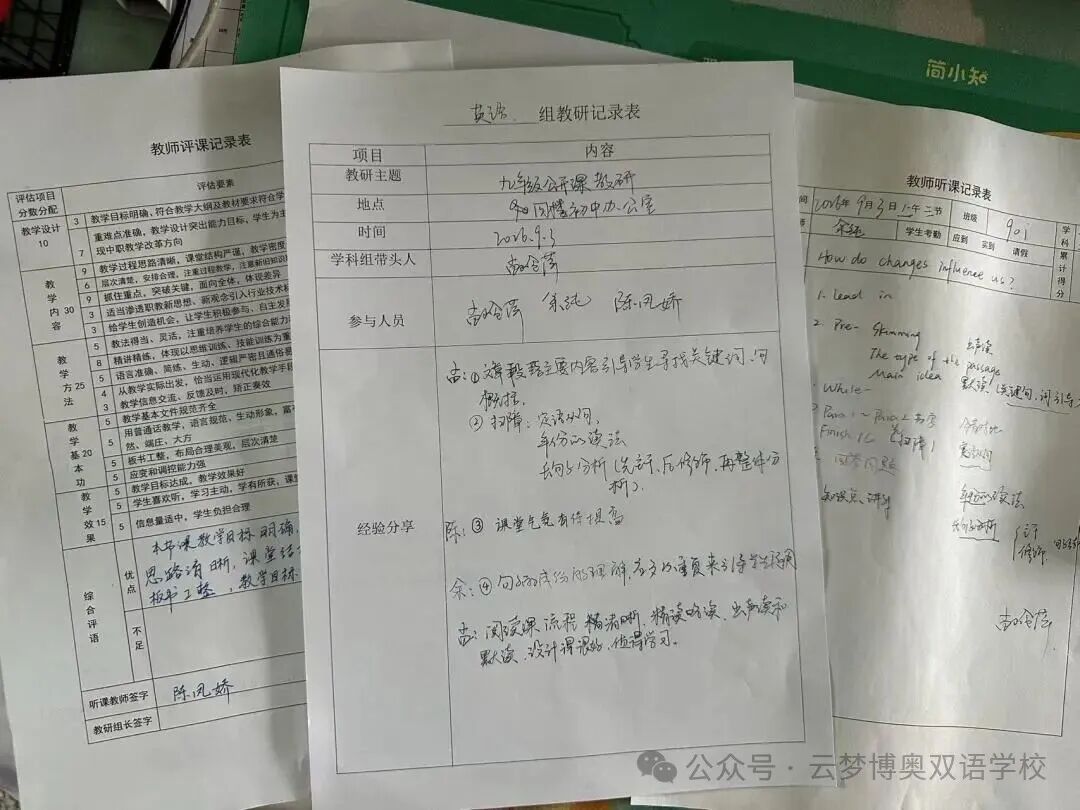 简小知
教师评课记录表
评估项目
分数分配
评估要素
教学设计
10
3 教学目标明确、符合教学大纲及教材要求符合学
7 重难点准确，教学设计突出能力目标，学生为主
现中职教学改革方向
教学内容 30
9 教学过程思路清晰，课堂结构严谨，教学密度
6 层次清楚，安排合理，注重过程教学，注意新旧知识
9 抓住重点，突破关键，面向全体，体现差异
3 适当渗透职教新思想、新观念引入行业技术标
3 给学生创造机会，让学生积极参与、自主发展
教学方法 25
5 教法得当、灵活，注重培养学生的综合能力
8 精讲精练，体现以思维训练、技能训练为重
5 语言准确、简练、生动、逻辑严密且通俗易
4 从教学实际出发，恰当运用现代化教学手段
3 教学信息交流、反馈及时，矫正奏效
教学基本功 20
5 教学基本文件规范齐全
5 用普通话教学，语言规范，生动形象，富有
然、端庄、大方
5 板书工整，布局合理美观，层次清楚
5 应变和调控能力强
教学效果 15
5 教学目标达成，教学效果好
5 学生喜欢听，学习主动，学有所获，课堂
5 信息量适中，学生负担合理
综合评语
优点
本节课教学目标明确，
思路清晰，课堂活
板书工整，教学目标
不足
听课教师签字 陈凤娇
教研组长签字
英语 组教研记录表
项目 内容
教研主题 九年级公开课教研
地点 初中办公室
时间 2026.9.3
学科组带头人
参与人员 余纯 陈凤娇
经验分享
①文章段落主要内容引导学生寻找关键词、句
概括。
②扫障：定语从句，
年份的读法
长句子分析（先主干，后修饰，再整体分
析）。
陈：③ 课堂气氛有待提高
余：④句子成份的理解，
阅读课流程清晰，精读略读、出声读和
默读、设计得很好，值得学习。
教师听课记录表
间 2026年9月3日上午三节 班级 901 学科
余纯 学生考勤 应到 实到 请假 累计得分
How do changes influence us?
1. Lead in
2. Pre- Skimming
The type of the passage
Main idea
出声读
默读（关键句，词引导）
While-
回答问题
知识点讲解
年份的读法
修饰
公众号 · 云梦博奥双语学校